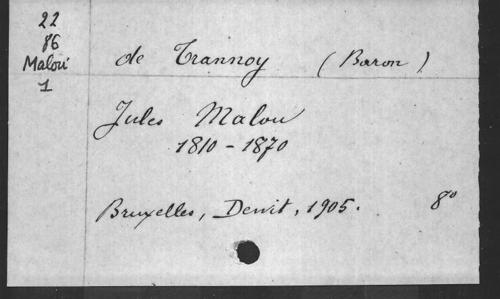 22
86
Malou
1
de Trannoy (Baron)
Jules Malou
1810 - 1870
Bruxelles, Dewit, 1905. 8°